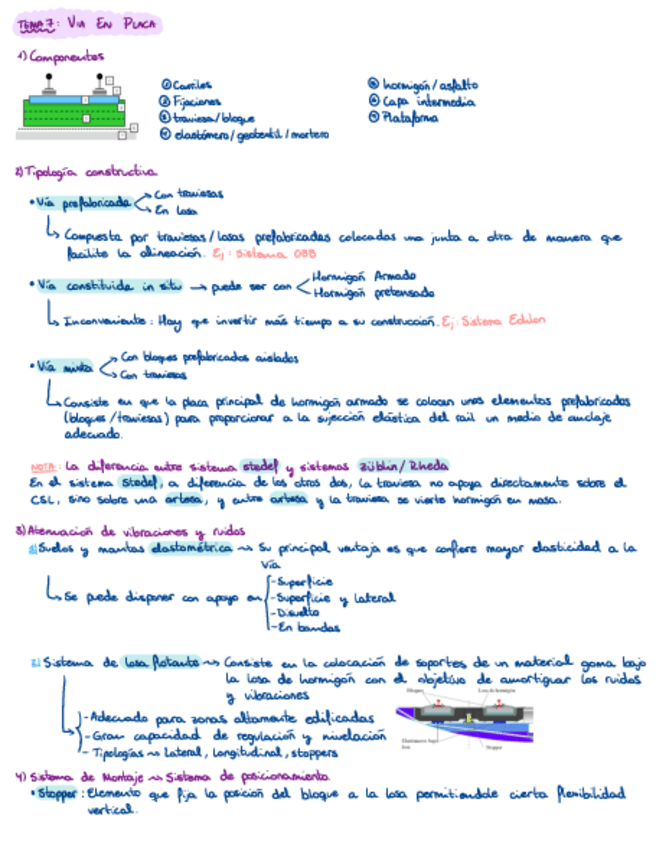 TEMA 7: VIA EN PLACA
1) Componentes
① Carriles
② Fijaciones
③ traviesa/bloque
④ elastómero/geotextil/mortero
⑤ hormigón/asfalto
⑥ Capa intermedia
⑦ Plataforma
2) Tipología constructiva
• Vía prefabricada
Con traviesas
En losa
Compuesta por traviesas/losas prefabricadas colocadas una junta a otra de manera que
facilite la alineación. Ej: Sistema OBB
• Vía constituida in situ → puede ser con
Hormigón Armado
Hormigón pretensado
Inconveniente: Hay que invertir más tiempo a su construcción. Ej: Sistema Edilon
• Vía mixta
Con bloques prefabricados aislados
Con traviesas
Consiste en que la placa principal de hormigón armado se colocan unos elementos prefabricados
(bloques/traviesas) para proporcionar a la sujección elástica del rail un medio de anclaje
adecuado.
NOTA: La diferencia entre sistema stedef y sistemas züblin/Rheda
En el sistema stedef, a diferencia de los otros dos, la traviesa no apoya directamente sobre el
CSL, sino sobre una artesa, y entre artesa y la traviesa se vierte hormigón en masa.
3) Atenuación de vibraciones y ruidos
1) Suelos y mantas elastométrica → Su principal ventaja es que confiere mayor elasticidad a la
vía
Se puede disponer con apoyo en
- Superficie
- Superficie y lateral
- Disuelto
- En bandas
2) Sistema de losa flotante → Consiste en la colocación de soportes de un material goma bajo
la losa de hormigón con el objetivo de amortiguar los ruidos
y vibraciones
- Adecuado para zonas altamente edificadas
- Gran capacidad de regulación y nivelación
- Tipologías → Lateral, longitudinal, stoppers
Bloque
Losa de hormigón
Elastómero bajo
losa
Stopper
4) Sistema de Montaje → Sistema de posicionamiento
• Stopper: Elemento que fija la posición del bloque a la losa permitiendole cierta flexibilidad
vertical.